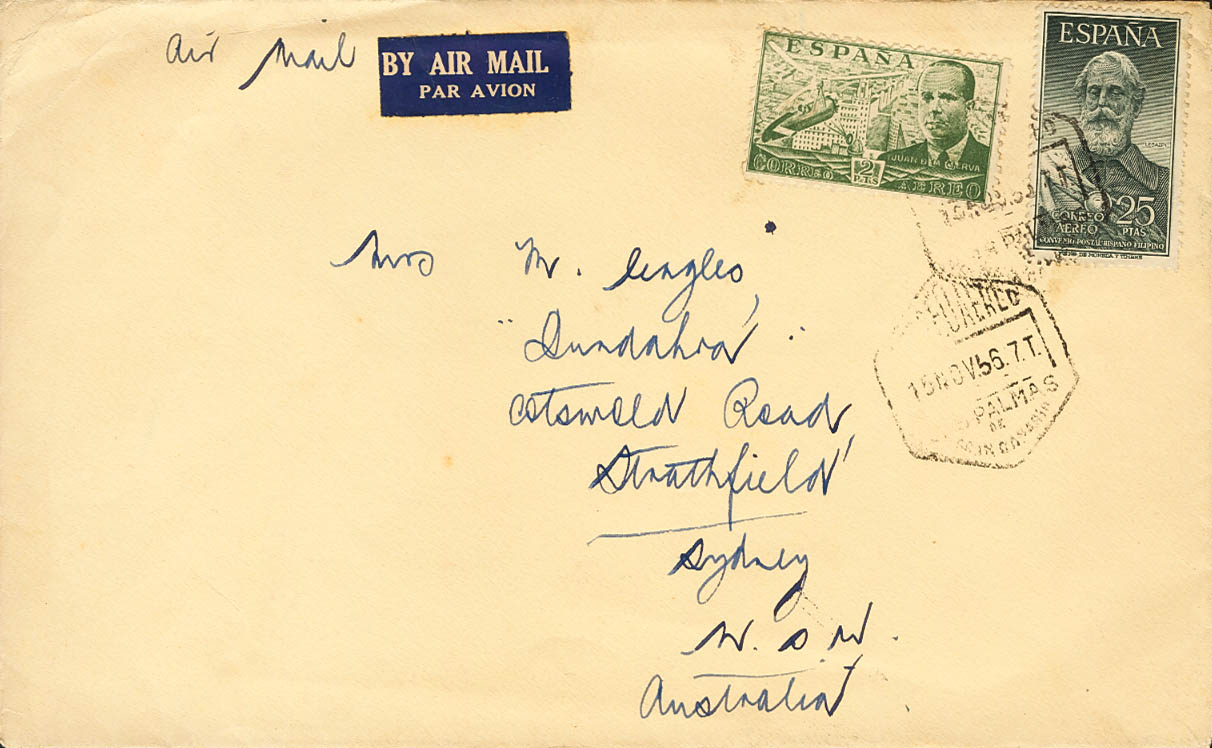 Air Mail
BY AIR MAIL
PAR AVION
ESPAÑA
JUAN DE LA CIERVA
CORREO 2 PTS AEREO
ESPAÑA
LEGAZPI
CORREO AEREO 25 PTAS
CONVENIO POSTAL HISPANO FILIPINO
Mrs M. Eagles,
"Dundahra"
Cotswold Road,
Strathfield
Sydney
N.S.W.
Australia
CORREO AEREO
15 NOV.56.7.T.
PALMAS
DE
GRAN CANARIA